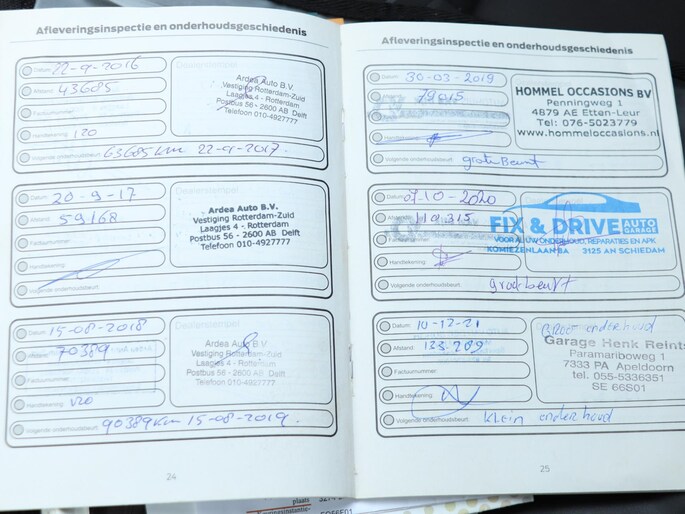 Afleveringsinspectie en onderhoudsgeschiedenis
Datum 22-9-2016
Afstand 43685
Factuurnummer
Handtekening
Volgende onderhoudsbeurt 63685 km 22-9-2017.
Dealerstempel
Ardea Auto B.V.
Vestiging Rotterdam-Zuid
Laagjes 4 - Rotterdam
Postbus 56 - 2600 AB Delft
Telefoon 010-4927777
Datum 20-9-17
Afstand 59168
Factuurnummer
Handtekening
Volgende onderhoudsbeurt
Dealerstempel
Ardea Auto B.V.
Vestiging Rotterdam-Zuid
Laagjes 4 - Rotterdam
Postbus 56 - 2600 AB Delft
Telefoon 010-4927777
Datum 15-08-2018
Afstand 70389
Factuurnummer
Handtekening
Volgende onderhoudsbeurt 90389 km 15-08-2019.
Dealerstempel
Ardea Auto B.V.
Vestiging Rotterdam-Zuid
Laagjes 4 - Rotterdam
Postbus 56 - 2600 AB Delft
Telefoon 010-4927777
24
Afleveringsinspectie en onderhoudsgeschiedenis
Datum 30-03-2019
79015
Volgende onderhoudsbeurt grote Beurt
HOMMEL OCCASIONS BV
Penningweg 1
4879 AE Etten-Leur
Tel: 076-5023779
www.hommeloccasions.nl
Datum 07-10-2020
Afstand 110315
Factuurnummer
Handtekening
Volgende onderhoudsbeurt grote beurt
FIX & DRIVE AUTO GARAGE
VOOR AL UW ONDERHOUD, REPARATIES EN APK
3125 AN SCHIEDAM
Datum 10-12-21
Afstand 123.289
Factuurnummer
Handtekening
Volgende onderhoudsbeurt Klein onderhoud
Groot onderhoud
Garage Henk Reints
Paramariboweg 1
7333 PA Apeldoorn
tel. 055-5336351
SE 66S01
25